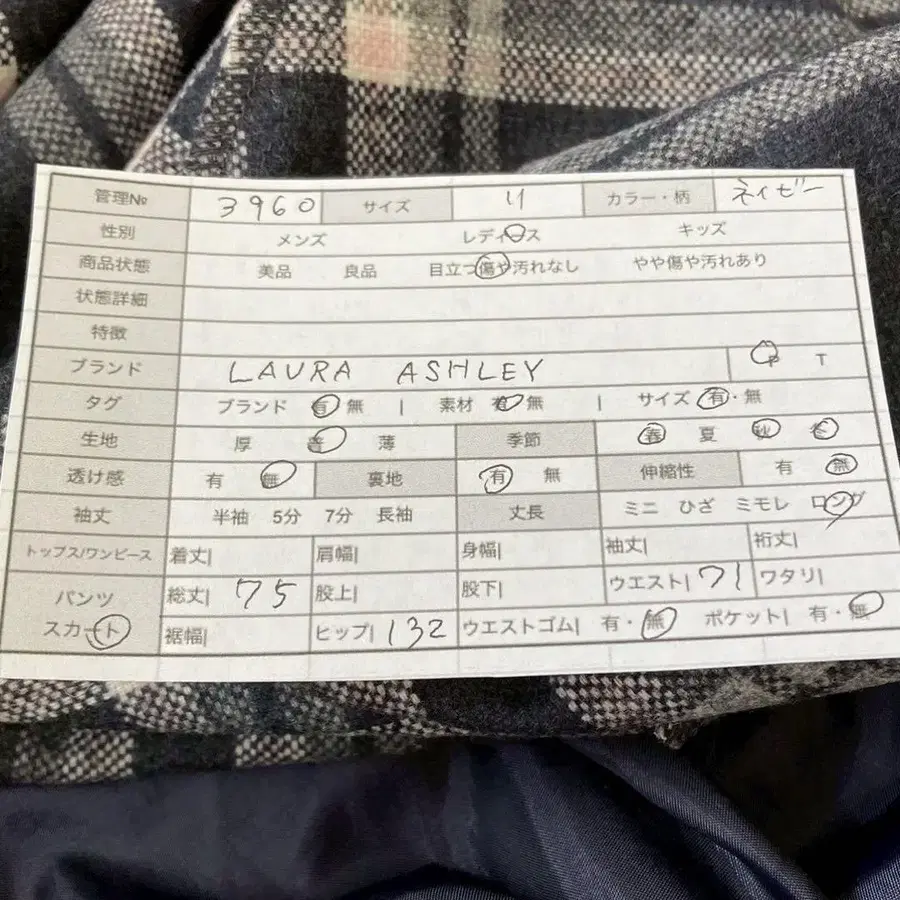 管理№ 3960 サイズ 11 カラー・柄 ネイビー
性別 メンズ レディース キッズ
商品状態 美品 良品 目立つ傷や汚れなし やや傷や汚れあり
状態詳細
特徴
ブランド LAURA ASHLEY P T
タグ ブランド 有 無 | 素材 有 無 | サイズ 有・無
生地 厚 普 薄 季節 春 夏 秋 冬
透け感 有 無 裏地 有 無 伸縮性 有 無
袖丈 半袖 5分 7分 長袖 丈長 ミニ ひざ ミモレ ロング
トップス/ワンピース 着丈| 肩幅| 身幅| 袖丈| 裄丈|
パンツ 総丈| 75 股上| 股下| ウエスト| 71 ワタリ|
スカート 裾幅| ヒップ| 132 ウエストゴム| 有・無 ポケット| 有・無